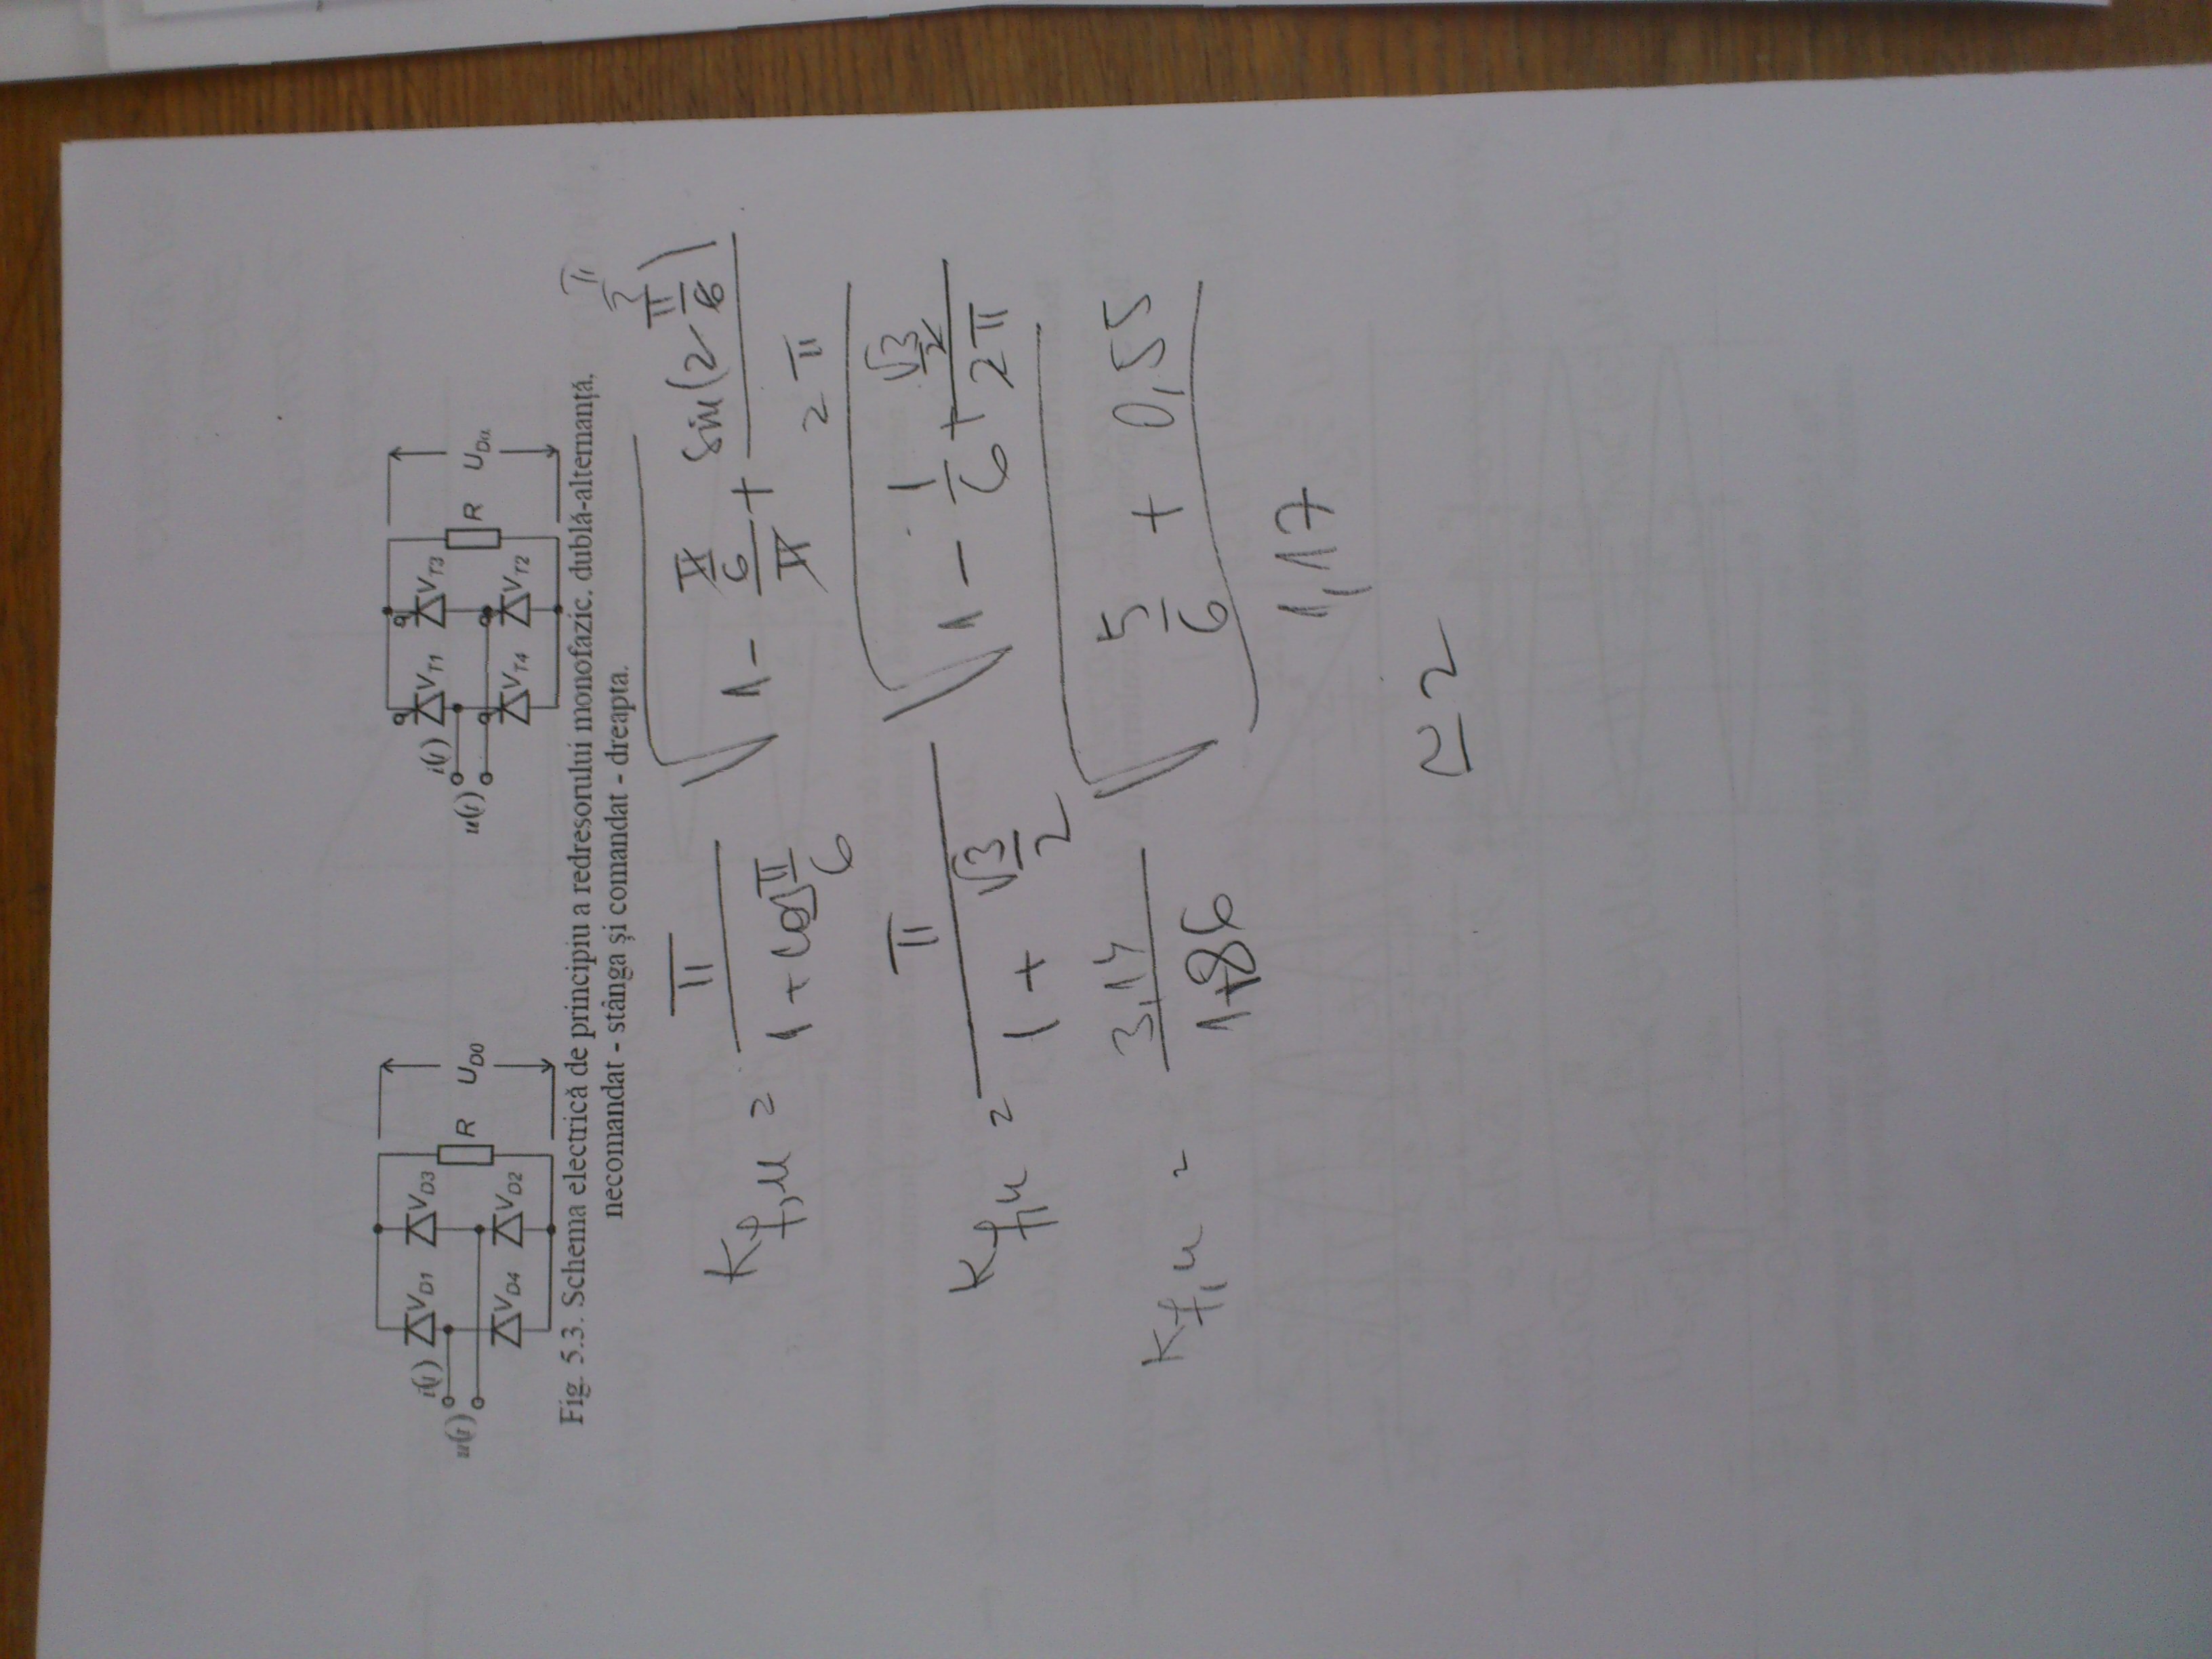 i(t) V_D1 V_D3 R U_D0 u(t) V_D4 V_D2
i(t) V_T1 V_T3 R U_Dα u(t) V_T4 V_T2
Fig. 5.3. Schema electrică de principiu a redresorului monofazic, dublă-alternanţă,
necomandat - stânga şi comandat - dreapta.
K_f,u = π / (1 + cos π/6) √(1 - (π/6)/π + sin(2 π/6) / 2π)
K_f,u = π / (1 + √3/2) √(1 - 1/6 + (√3/2) / 2π)
K_f,u = 3,14 / 1,86 √(5/6 + 0,55)
1,17
≃ 2